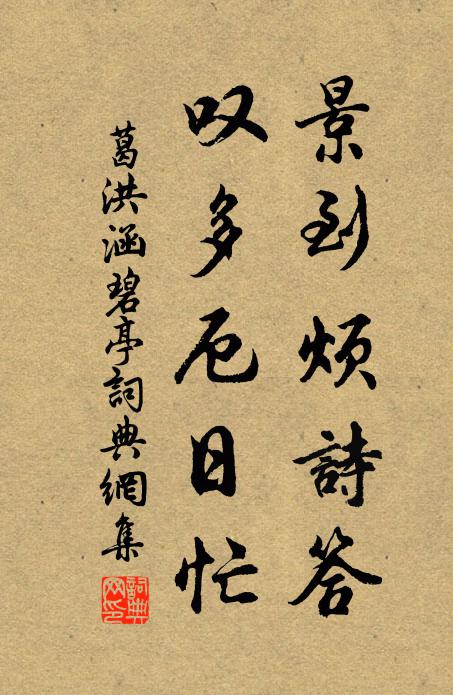 景到烦詩答
叹多厄日忙
葛洪涵碧亭詞典網集
詞典网印